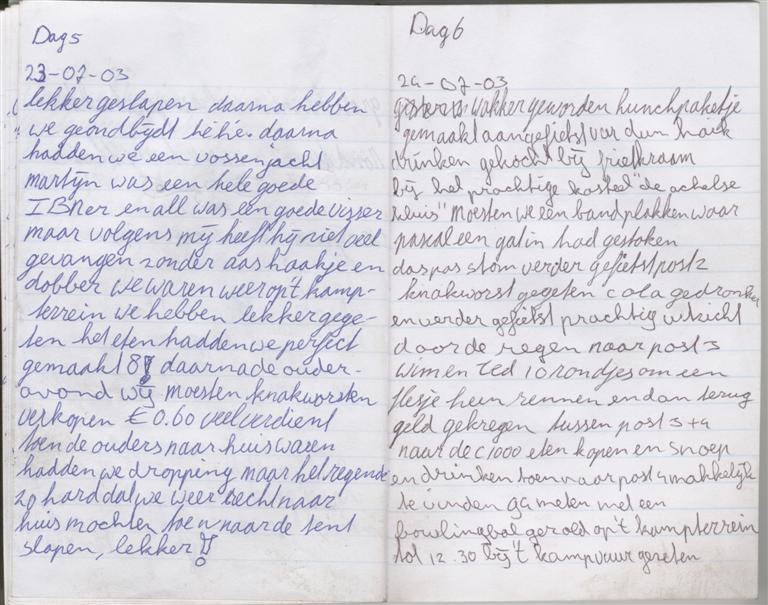 Dag 5
23-07-03
lekker geslapen daarna hebben
we geondbijdt hèhè. daarna
hadden we een vossenjacht
martijn was een hele goede
IBNer en all was een goede visser
maar volgens mij heeft hij niet veel
gevangen zonder aas haakje en
dobber we waren weer op't kamp-
terrein we hebben lekker gege-
ten het eten hadden we perfect
gemaakt 8! daarna de ouder-
avond wij moesten knakworsten
verkopen € 0.60 veel verdient
toen de ouders naar huis waren
hadden we dropping maar het regende
zo hard dat we weer recht naar
huis mochten toen naar de tent
slapen, lekker!!
Dag 6
24-07-03
wakker geworden lunchpaketje
gemaakt aangefietst ver dun haik
drinken gekocht bij frietkraam
bij het prachtige kasteel "de achelse
kluis" moesten we een band plakken waar
pascal een gat in had gestoken
das pas stom verder gefietst post 2
knakworst gegeten cola gedronken
en verder gefietst prachtig uitzicht
door de regen naar post 3
wim en Ted 10 rondjes om een
flesje heen rennen en dan terug
geld gekregen tussen post 3 + 4
naar de c1000 eten kopen en snoep
en drinken toen naar post 4 makkelijk
te vinden 94 meter met een
bowlingbal gerold op't kampterrein
tot 12.30 bij 't kampvuur gezeten